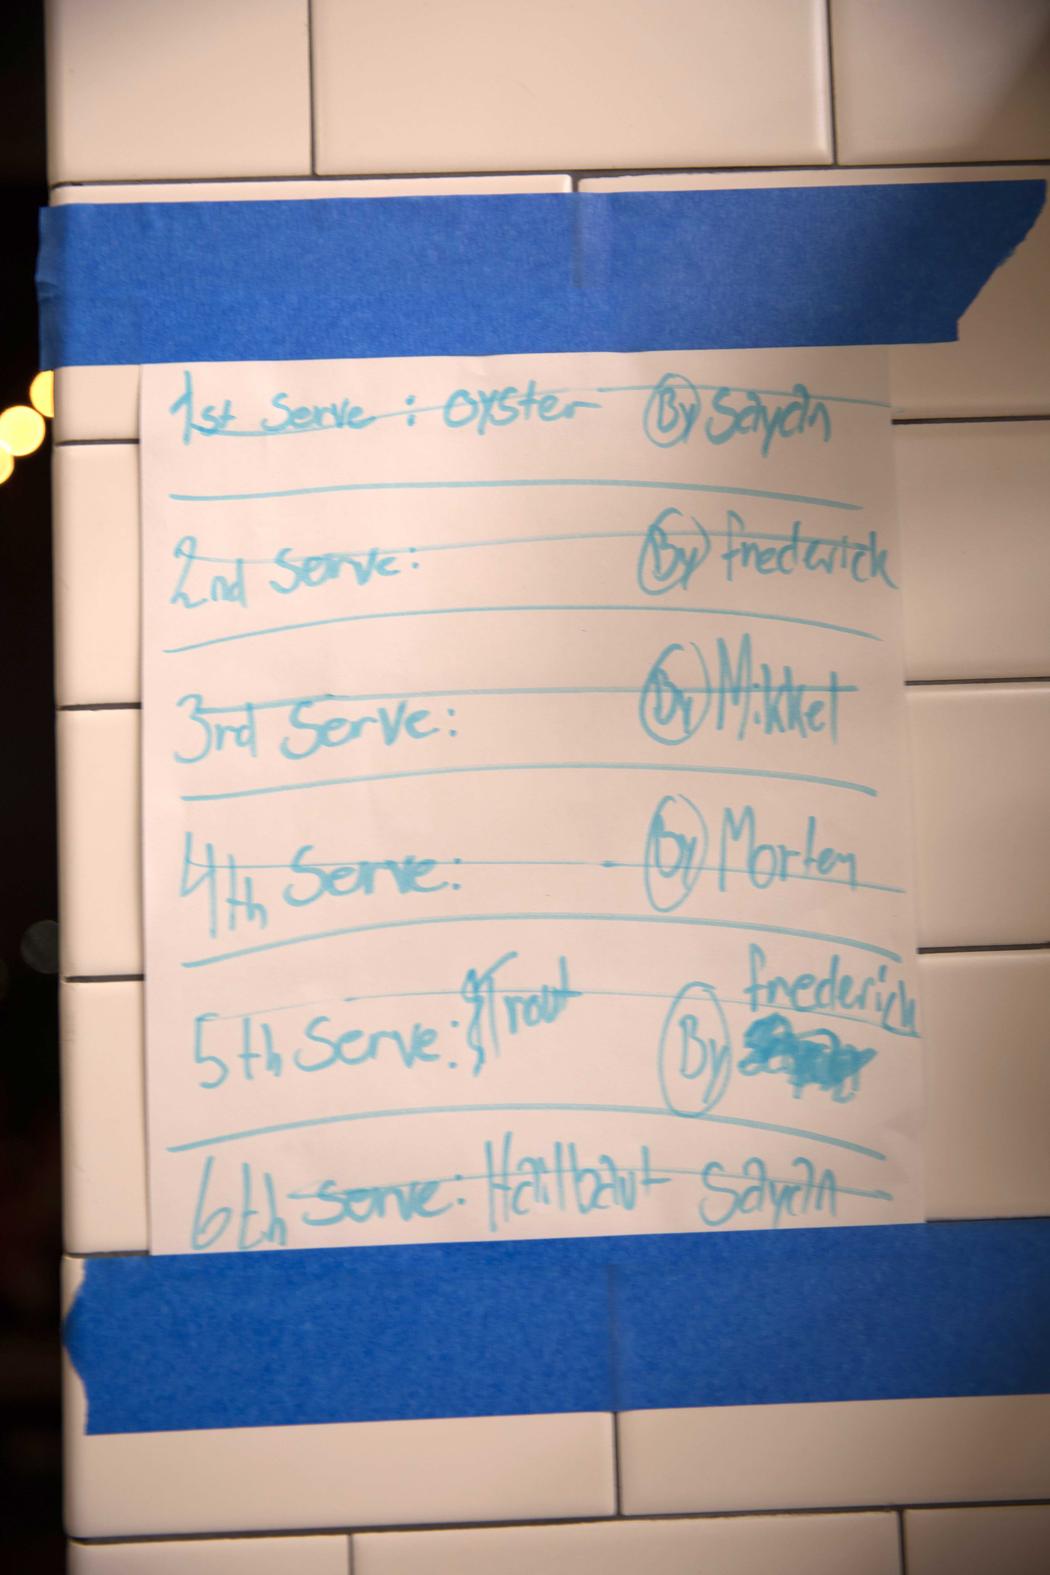 1st Serve: oyster By Sayan
2nd Serve: By frederick
3rd Serve: By Mikkel
4th Serve: By Morten
frederick
5th Serve: Trout By
6th Serve: Hailbaut Sayan